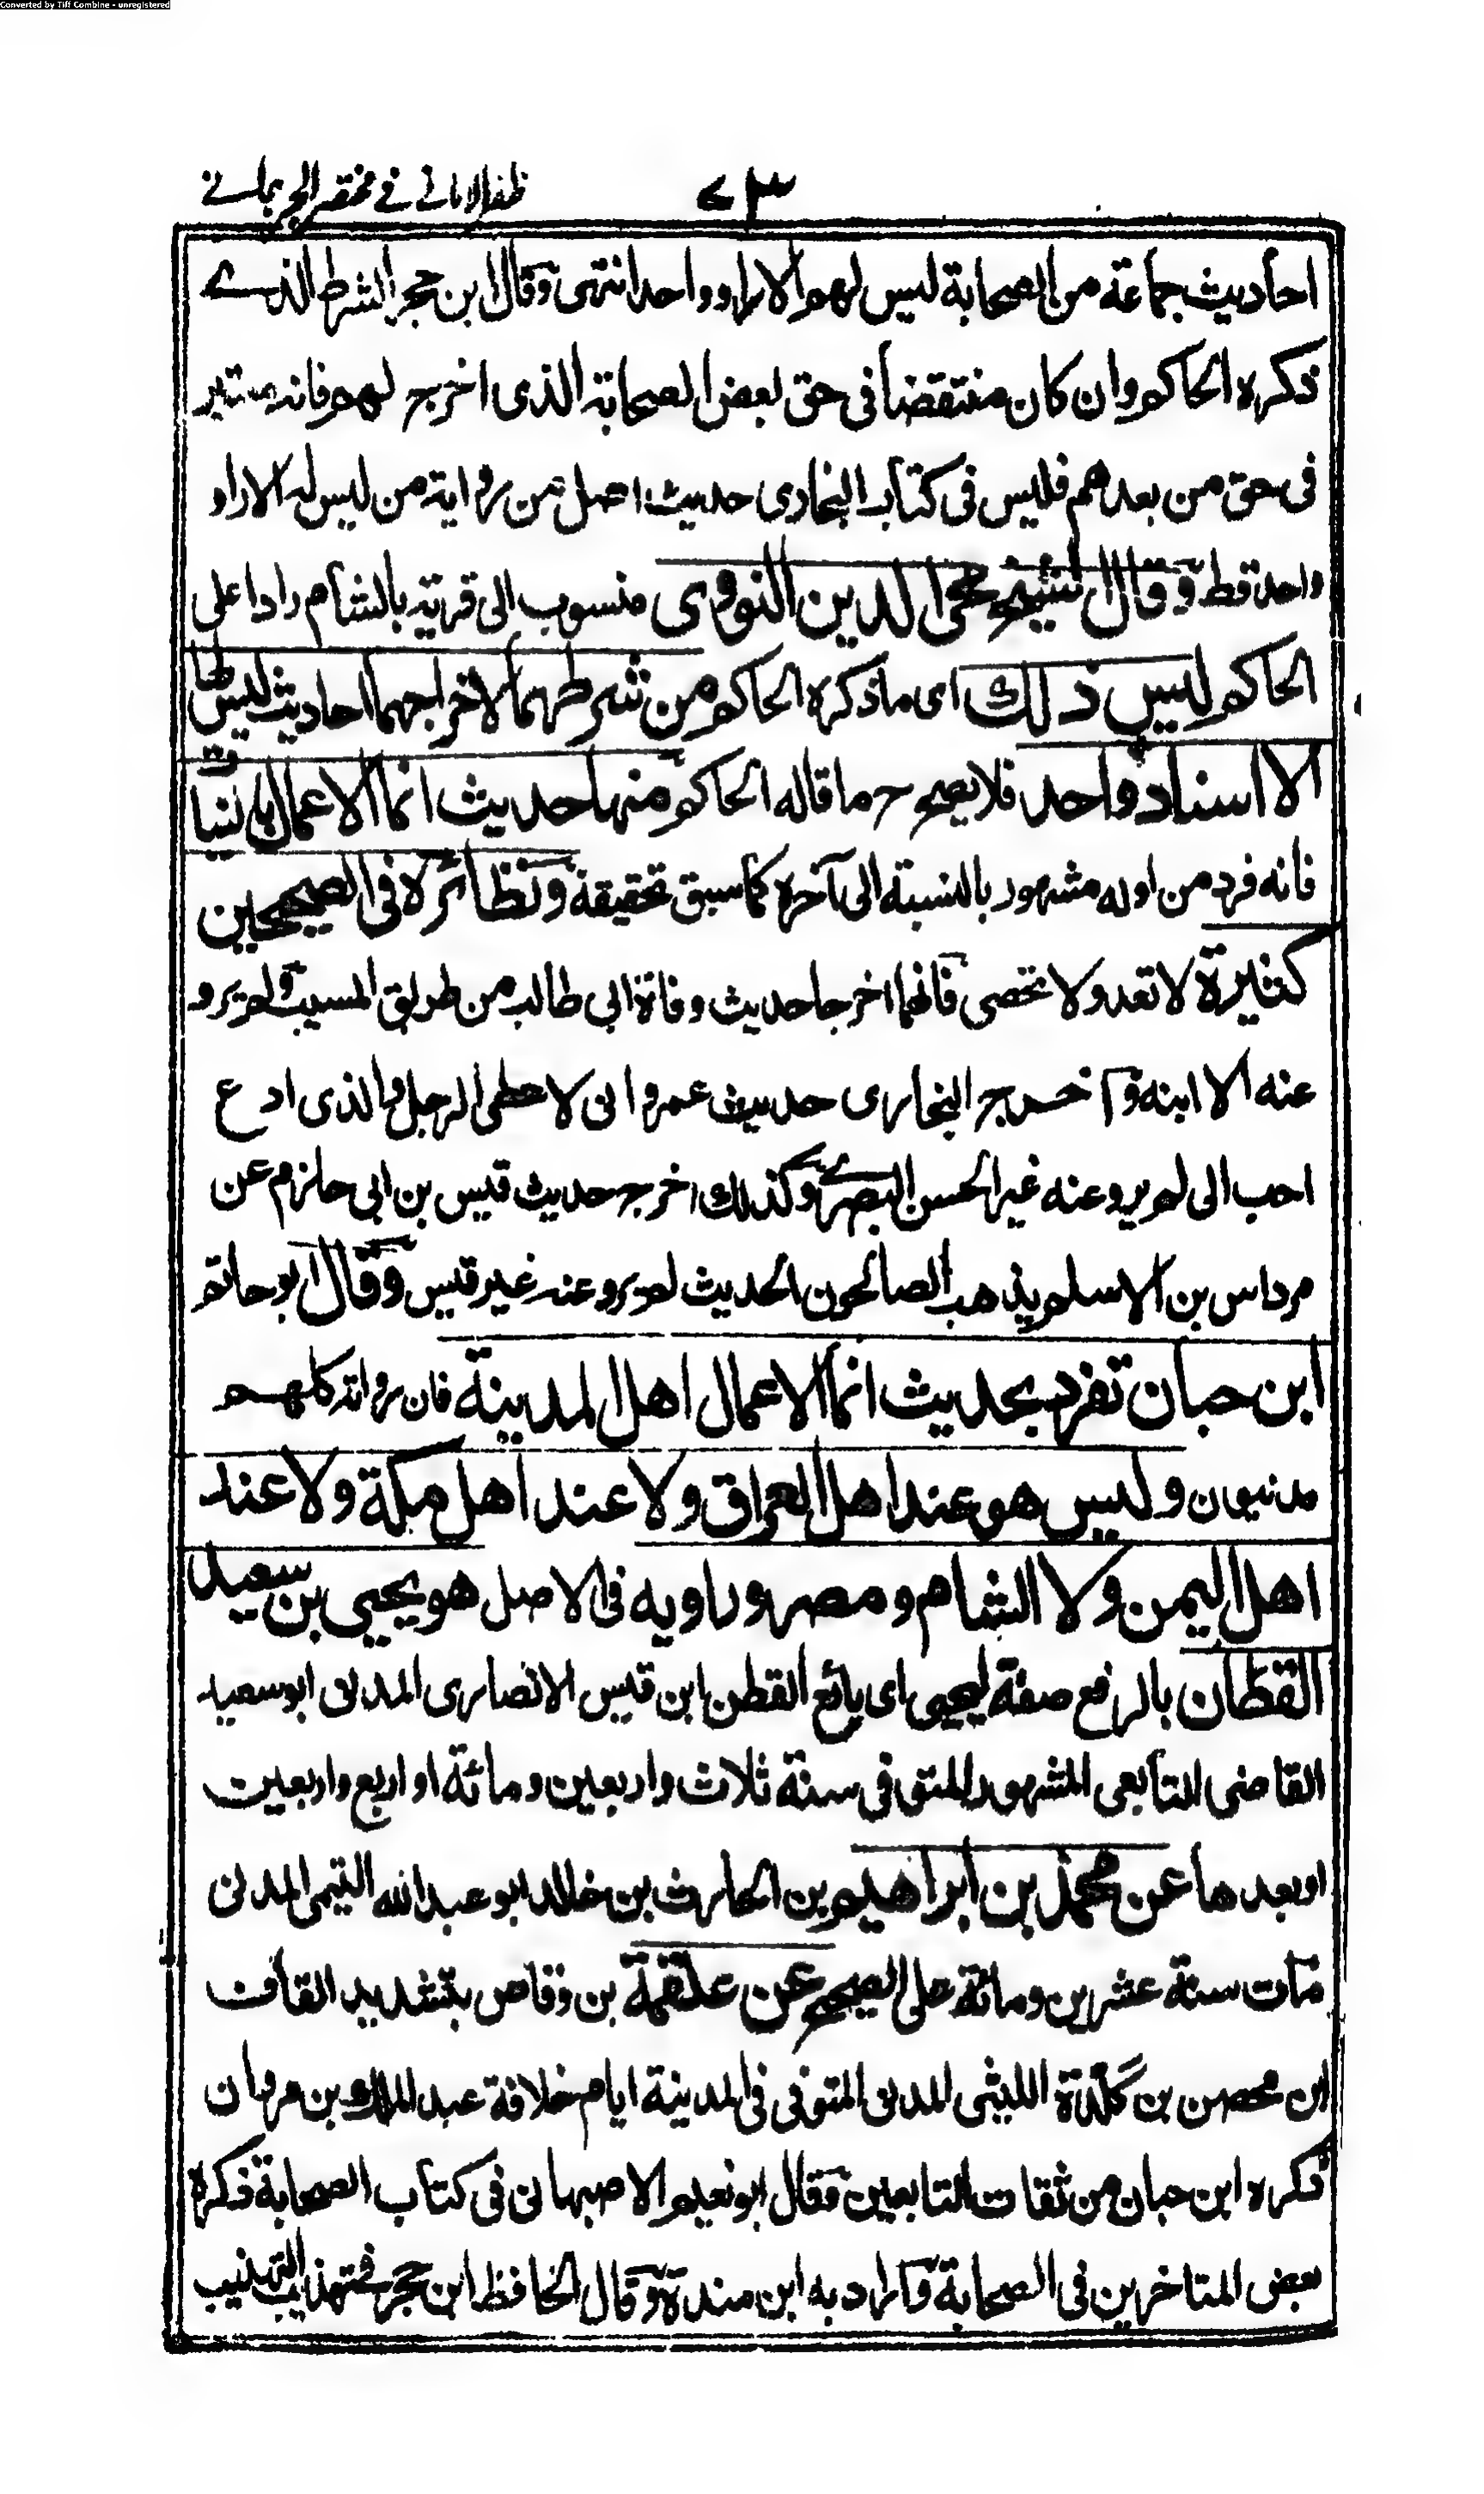 Converted by Tiff Combine - unregistered
ظفر الامانی فی مختصر الجرجانی
٧٣
احاديث جماعة من الصحابة ليس لهم الا راو واحد انتهى وقال ابن حجر الشرط الذے
ذكره الحاكم وان كان منتقضا فى حق بعض الصحابة الذى اخرج لهم فانه معتبر
فى حق من بعدهم فليس فى كتاب البخارى حديث اصل من رواية من ليس له الا راو
واحد قط وقال الشيخ محى الدين النووى منسوب الى قرية بالشام رادا على
الحاكم ليس ذلك اى ما ذكره الحاكم من شرطهما لاخراجهما احاديث ليس لها
الا اسناد واحد فلا يصح ما قاله الحاكم منها حديث انما الاعمال بالنيات
فانه فرد من اوله مشهور بالنسبة الى آخره كما سبق تحقيقه ونظائره فى الصحيحين
كثيرة لا تعد ولا تحصى فانهما اخرجا حديث وفاة ابى طالب من طريق المسيب ولم يرو
عنه الا ابنه واخرج البخارى حديث عمرو انى لاعطى الرجل والذى ادع
احب الى لم يرو عنه غير الحسن البصرے وكذلك اخرج حديث قيس بن ابى حازم عن
مرداس بن الاسلم يذهب الصالحون الحديث لم يرو عنه غير قيس وقال ابو حاتم
ابن حبان تفرد بحديث انما الاعمال اهل المدينة فان رواته كلهم
مدنيون وليس هو عند اهل العراق ولا عند اهل مكة ولا عند
اهل اليمن ولا الشام ومصر وراويه فى الاصل هو يحيى بن سعيد
القطان بالرفع صفة ليحيى اى بائع القطن ابن قيس الانصارى المدنى ابو سعيد
القاضى التابعى المشهور المتوفى سنة ثلاث واربعين ومائة او اربع واربعين
او بعدها عن محمد بن ابراهيم بن الحارث بن خالد ابو عبد الله التيمى المدنى
مات سنة عشرين ومائة على الصحيح عن علقمة بن وقاص بتشديد القاف
ابن محصن بن كلدة الليثى المدنى المتوفى فى المدينة ايام خلافة عبد الملك بن مروان
ذكره ابن حبان من ثقات التابعين وقال ابو نعيم الاصبهانى فى كتاب الصحابة ذكره
بعض المتاخرين فى الصحابة واراد به ابن مندة وقال الحافظ ابن حجر فى تهذيب التهذيب